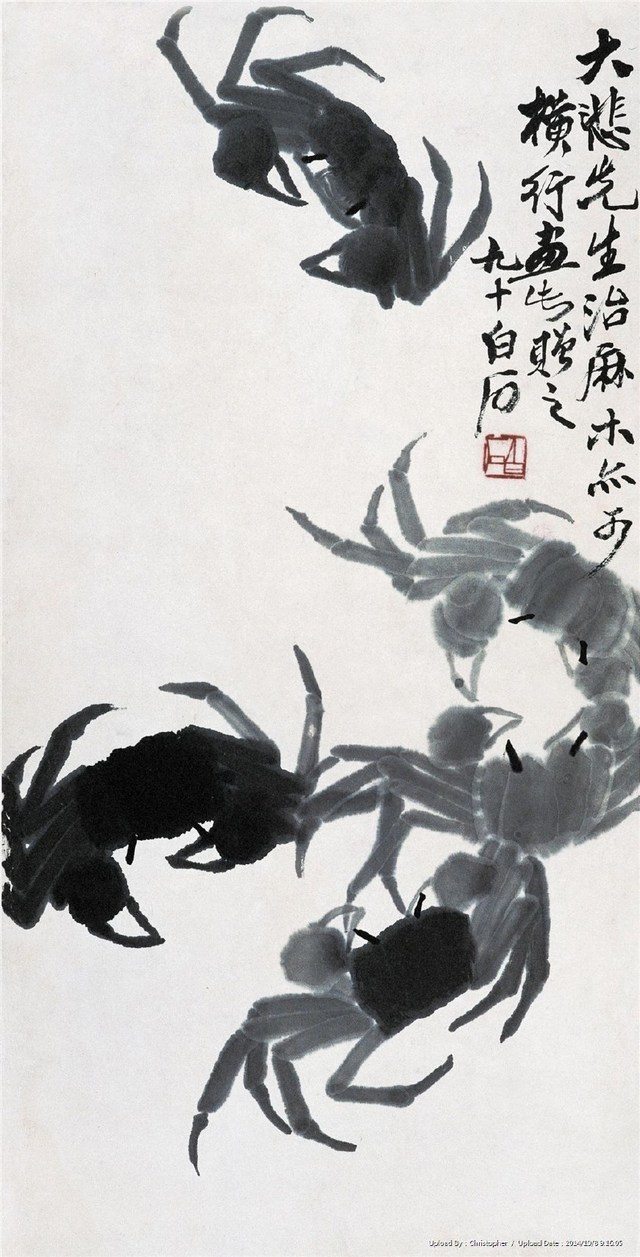 大悲先生治麻木亦可
横行画此赠之
九十白石
Upload By : Christopher / Upload Date : 2014/10/8 9:16:05